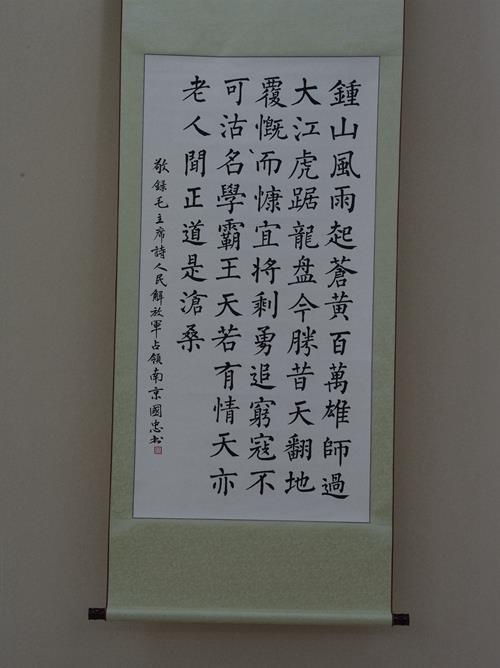 鍾山風雨起蒼黃百萬雄師過
大江虎踞龍盘今勝昔天翻地
覆慨而慷宜将剩勇追窮寇不
可沽名學霸王天若有情天亦
老人間正道是滄桑
敬録毛主席詩人民解放軍占領南京國忠书